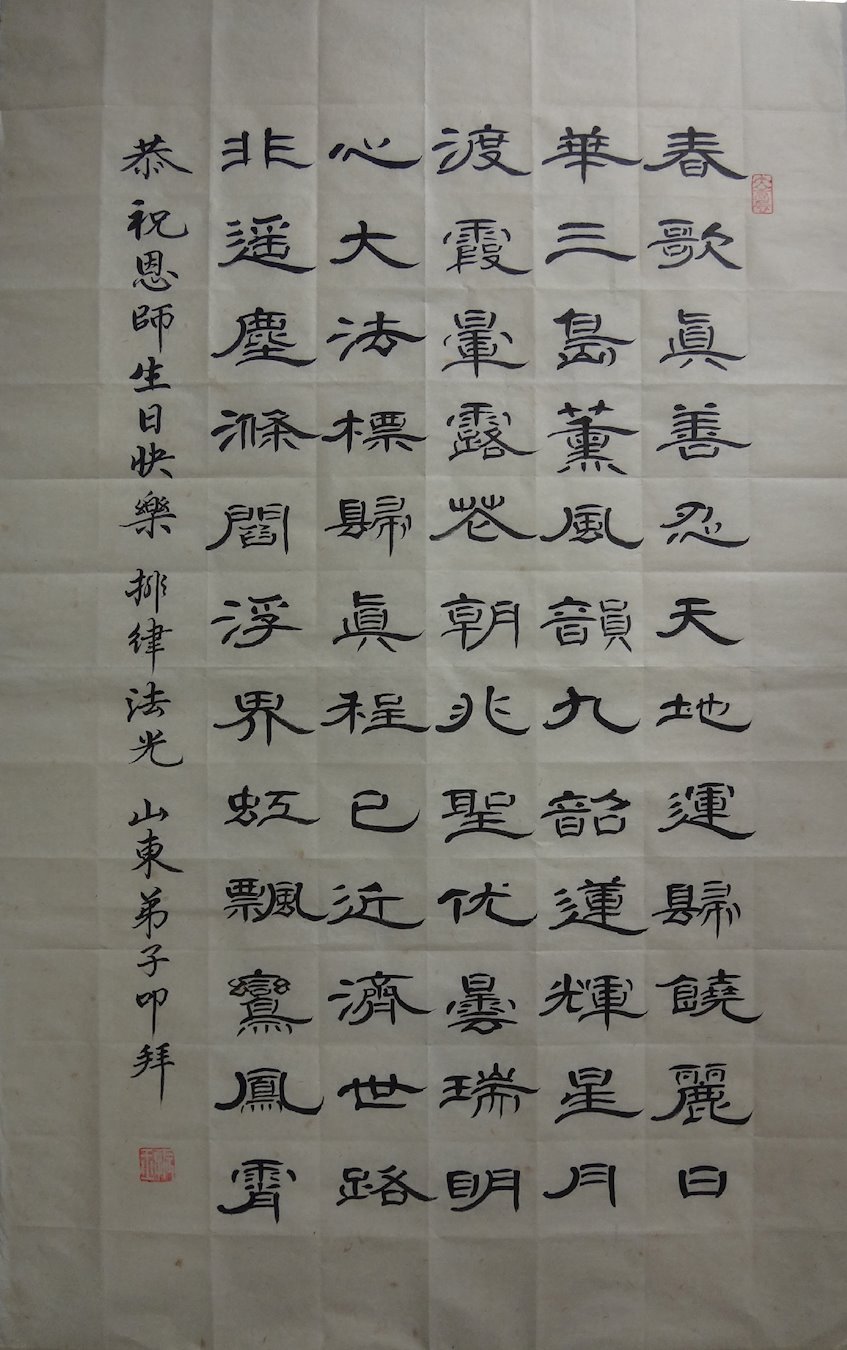 春歌真善忍天地運歸饒麗日
華三島薰風韻九韶蓮輝星月
渡霞暈露花朝兆聖優曇瑞明
心大法標歸真程已近濟世路
非遥塵滌閻浮界虹飄鸞鳳霄
恭祝恩師生日快樂 排律法光 山東弟子叩拜